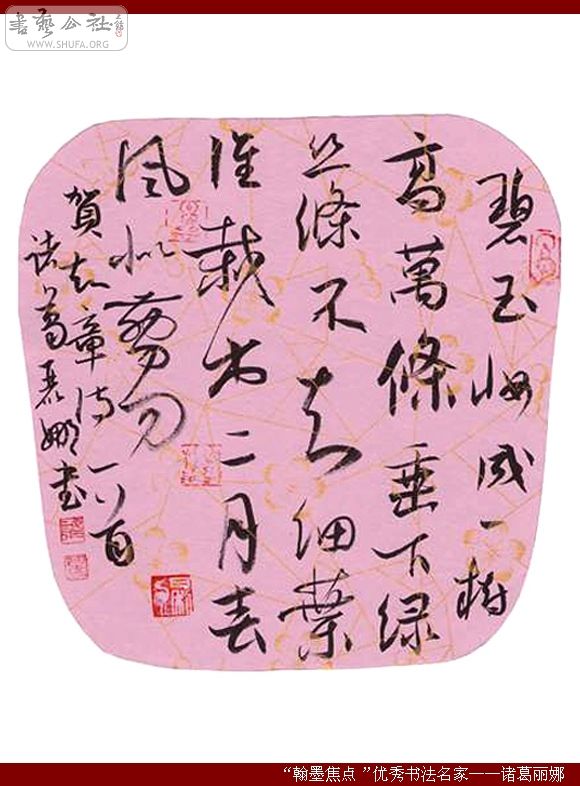 書藝公社
WWW.SHUFA.ORG
碧玉妝成一树
高萬條垂下绿
丝條不知细葉
谁裁出二月春
風似剪刀
賀知章诗一首
诸葛丽娜书
“翰墨焦点 ”优秀书法名家——诸葛丽娜